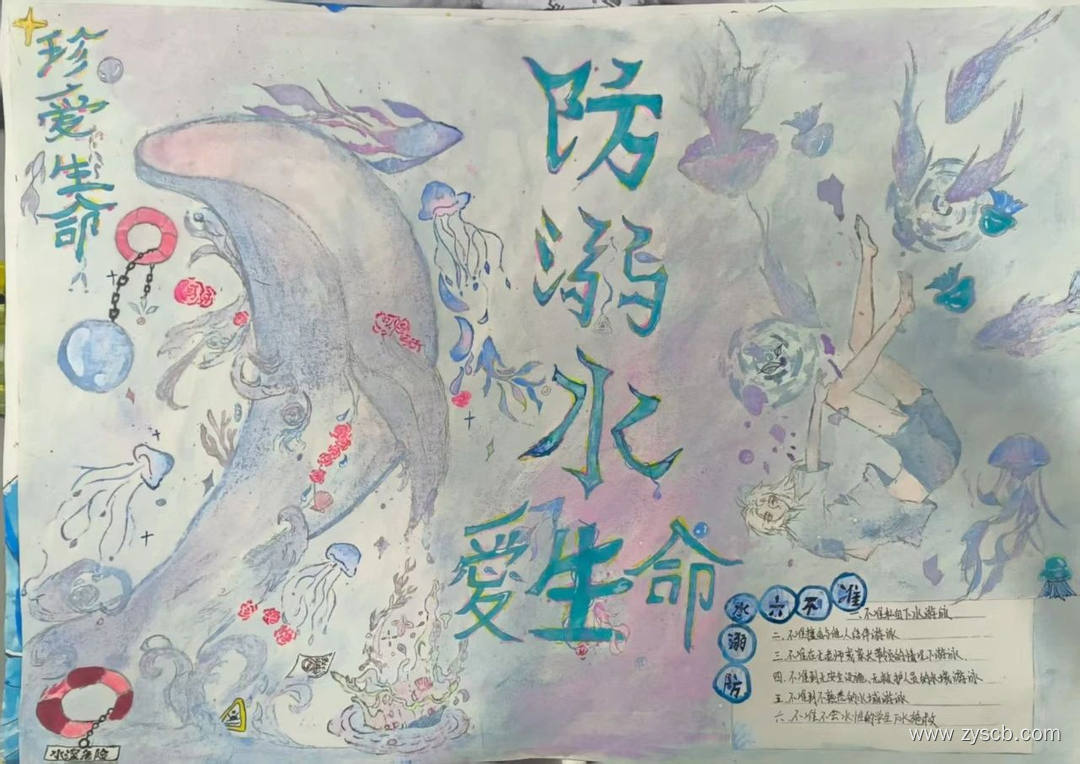 珍爱生命
防溺水
爱生命
防溺水六不准
一.不准私自下水游泳
二.不准擅自与他人结伴游泳
三.不准在无老师或家长带领的情况下游泳
四.不准到无安全设施、无救护人员的水域游泳
五.不准到不熟悉的水域游泳
六.不准不会水性的学生下水施救
水深危险
www.zyscb.com